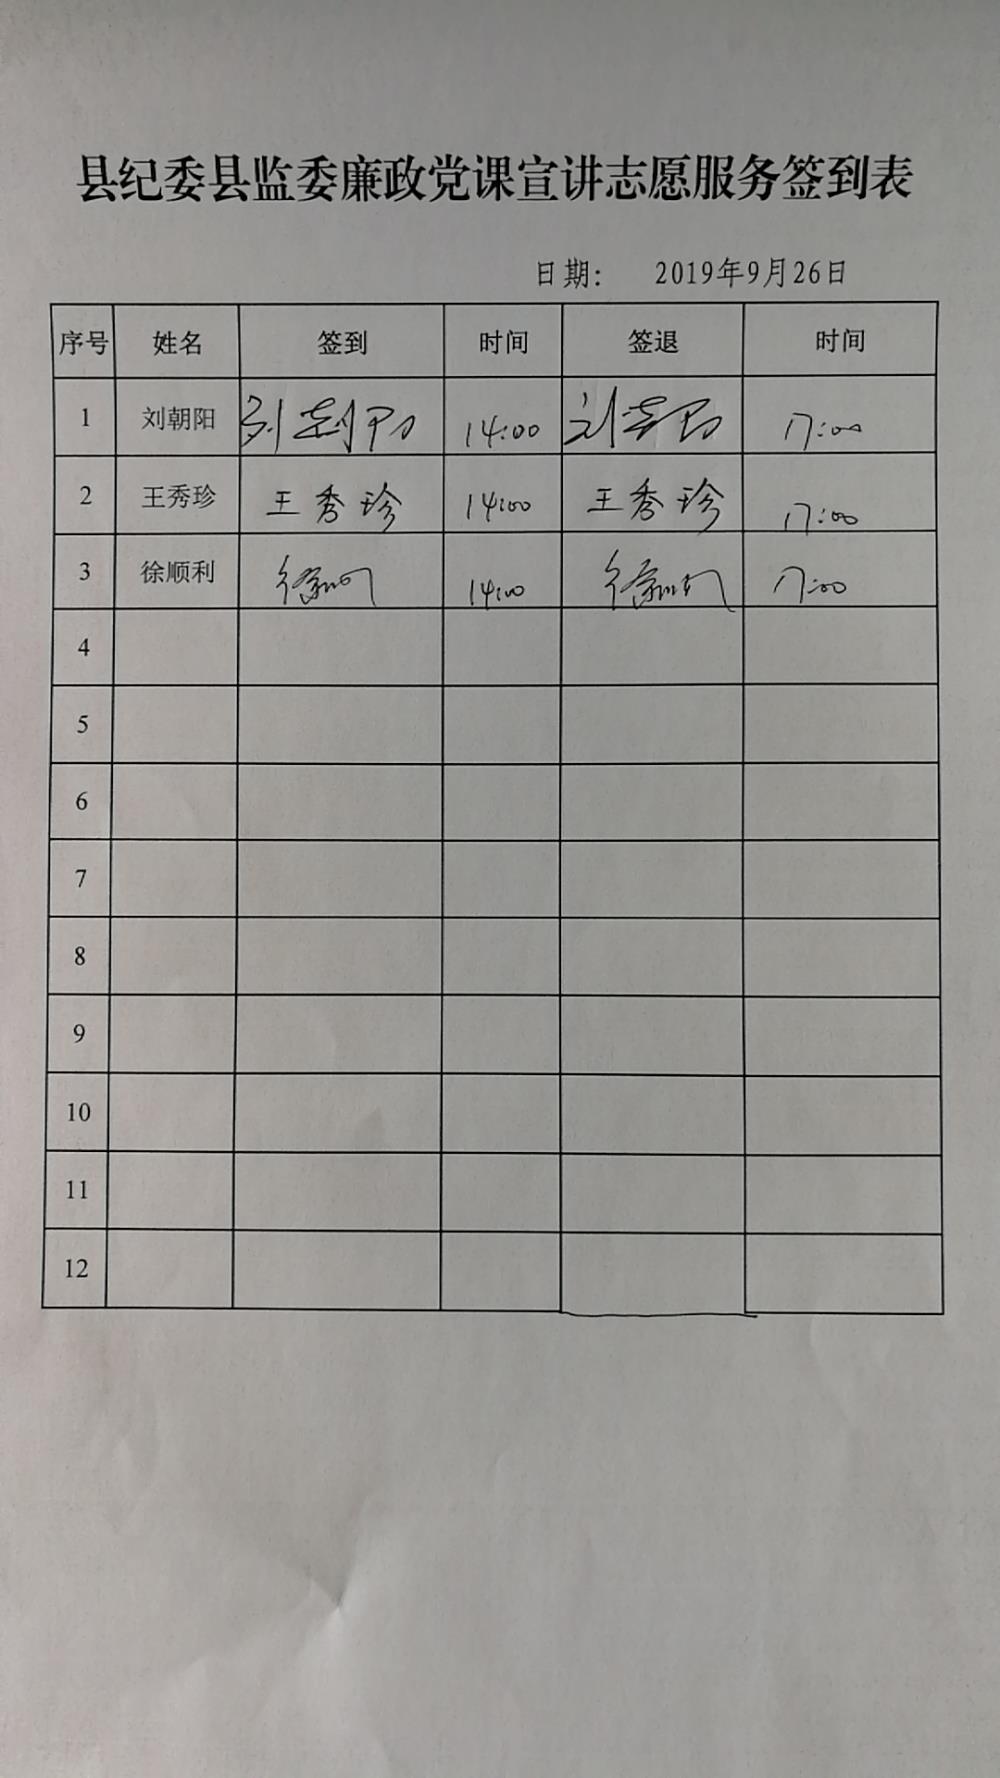 县纪委县监委廉政党课宣讲志愿服务签到表
日期： 2019年9月26日
序号 姓名 签到 时间 签退 时间
1 刘朝阳 刘朝阳 14:00 刘朝阳 17:00
2 王秀珍 王秀珍 14:00 王秀珍 17:00
3 徐顺利 徐顺利 14:00 徐顺利 17:00
4
5
6
7
8
9
10
11
12